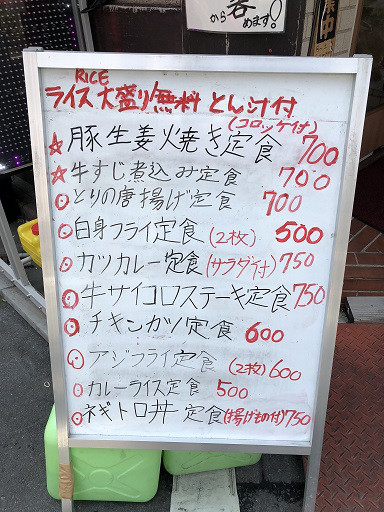 から呑めます!
RICE
ライス大盛り無料 とん汁付
(コロッケ付)
☆豚生姜火焼き定食 700
☆牛すじ煮込み定食 700
◎とりの唐揚げ定食 700
◎白身フライ定食(2枚) 500
◎カツカレー定食(サラダ付)750
◎牛サイコロステーキ定食750
◎チキンカツ定食 600
◎アジフライ定食(2枚)600
◎カレーライス定食 500
◎ネギトロ丼定食(揚げもの付)750